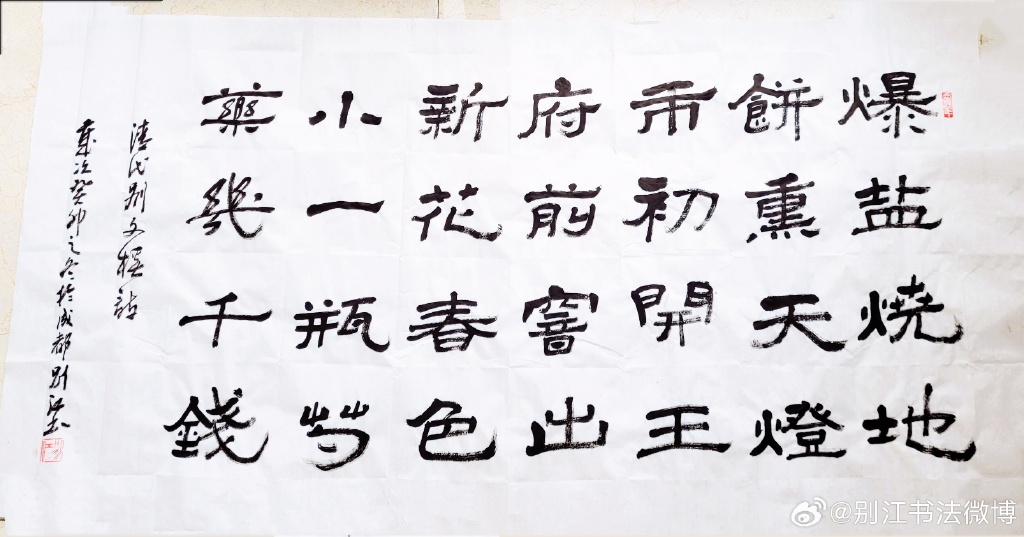 爆盐燒地
餅熏天燈
市初開王
府前窨出
新花春色
小一瓶芍
藥幾千錢
清代别文詩
歲次癸卯之冬於成都别江书
@别江书法微博